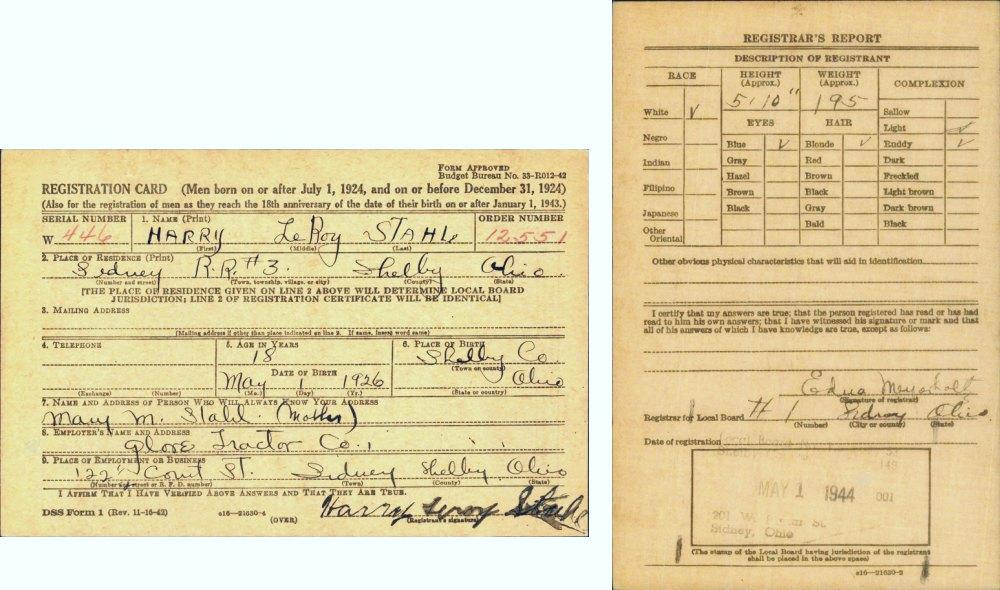 FORM APPROVED
Budget Bureau No. 33-R012-42
REGISTRATION CARD (Men born on or after July 1, 1924, and on or before December 31, 1924)
(Also for the registration of men as they reach the 18th anniversary of the date of their birth on or after January 1, 1943.)
SERIAL NUMBER 1. NAME (Print) ORDER NUMBER
W 446 HARRY LeRoy STAHL 12551
(First) (Middle) (Last)
2. PLACE OF RESIDENCE (Print)
Sidney R.R. #3. Shelby Ohio
(Number and street) (Town, township, village, or city) (County) (State)
[THE PLACE OF RESIDENCE GIVEN ON LINE 2 ABOVE WILL DETERMINE LOCAL BOARD
JURISDICTION; LINE 2 OF REGISTRATION CERTIFICATE WILL BE IDENTICAL]
3. MAILING ADDRESS
[Mailing address if other than place indicated on line 2. If same, insert word same]
4. TELEPHONE 5. AGE IN YEARS 6. PLACE OF BIRTH
18 Shelby Co.
(Town or county)
DATE OF BIRTH
May 1 1926 Ohio
(Exchange) (Number) (Mo.) (Day) (Yr.) (State or country)
7. NAME AND ADDRESS OF PERSON WHO WILL ALWAYS KNOW YOUR ADDRESS
Mary M. Stahl (Mother)
8. EMPLOYER'S NAME AND ADDRESS
Glove Tractor Co.
9. PLACE OF EMPLOYMENT OR BUSINESS
Court St. Sidney Shelby Ohio
(Number and street or R. F. D. number) (Town) (County) (State)
I AFFIRM THAT I HAVE VERIFIED ABOVE ANSWERS AND THAT THEY ARE TRUE.
Harry Leroy Stahl
DSS Form 1 (Rev. 11-16-42) c16—21630-4 (Registrant's signature)
(OVER)
REGISTRAR'S REPORT
DESCRIPTION OF REGISTRANT
RACE HEIGHT (Approx.) WEIGHT (Approx.) COMPLEXION
5' 10" 195
White Sallow
EYES HAIR Light
Negro Blue Blonde Ruddy
Gray Red Dark
Indian Hazel Brown Freckled
Filipino Brown Black Light brown
Japanese Black Gray Dark brown
Other Oriental Bald Black
Other obvious physical characteristics that will aid in identification
I certify that my answers are true; that the person registered has read or has had
read to him his own answers; that I have witnessed his signature or mark and that
all of his answers of which I have knowledge are true, except as follows:
Edna
(Signature of registrar)
Registrar for Local Board # 1 Sidney Ohio
(Number) (City or county) (State)
Date of registration
149
MAY 1 1944 001
201 W. St.
Sidney, Ohio
(The stamp of the Local Board having jurisdiction of the registrant
shall be placed in the above space)
c16—21630-2